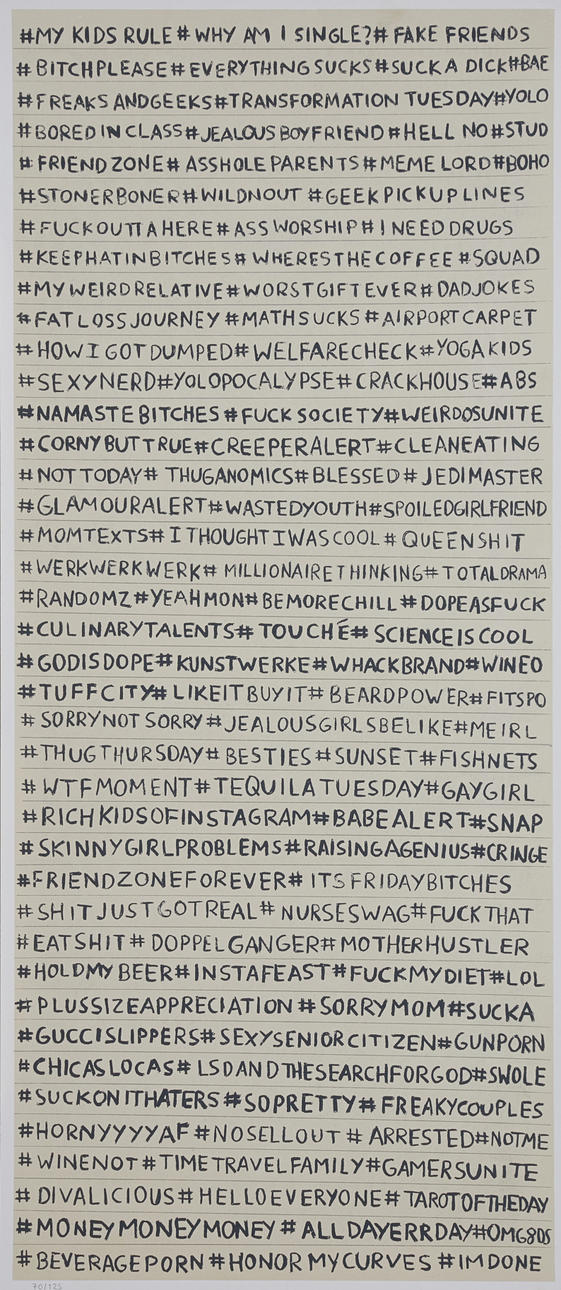 #MY KIDS RULE#WHY AM I SINGLE?#FAKE FRIENDS
#BITCHPLEASE#EVERYTHING SUCKS#SUCK A DICK#BAE
#FREAKS ANDGEEKS#TRANSFORMATION TUESDAY#YOLO
#BORED IN CLASS#JEALOUS BOYFRIEND#HELL NO#STUD
#FRIENDZONE#ASSHOLE PARENTS#MEME LORD#BOHO
#STONERBONER#WILDNOUT #GEEKPICKUPLINES
#FUCKOUTTAHERE#ASS WORSHIP#I NEED DRUGS
#KEEPHATINBITCHES#WHERESTHECOFFEE#SQUAD
#MY WEIRD RELATIVE#WORSTGIFTEVER#DADJOKES
#FATLOSSJOURNEY#MATHSUCKS#AIRPORT CARPET
#HOW I GOT DUMPED#WELFARECHECK#YOGAKIDS
#SEXYNERD#YOLOPOCALYPSE#CRACKHOUSE#ABS
#NAMASTE BITCHES #FUCK SOCIETY#WEIRDOSUNITE
#CORNY BUT TRUE#CREEPERALERT#CLEANEATING
#NOT TODAY#THUGANOMICS#BLESSED#JEDIMASTER
#GLAMOURALERT#WASTEDYOUTH#SPOILEDGIRLFRIEND
#MOMTEXTS#I THOUGHT I WAS COOL#QUEENSHIT
#WERKWERKWERK#MILLIONAIRETHINKING#TOTALDRAMA
#RANDOMZ#YEAHMON#BEMORECHILL#DOPEASFUCK
#CULINARYTALENTS#TOUCHÉ#SCIENCE IS COOL
#GODISDOPE#KUNSTWERKE#WHACKBRAND#WINEO
#TUFFCITY#LIKEITBUYIT#BEARDPOWER#FITSPO
#SORRYNOT SORRY#JEALOUSGIRLSBELIKE#MEIRL
#THUGTHURSDAY#BESTIES#SUNSET#FISHNETS
#WTFMOMENT#TEQUILATUESDAY#GAYGIRL
#RICHKIDSOFINSTAGRAM#BABEALERT#SNAP
#SKINNYGIRLPROBLEMS#RAISINGAGENIUS#CRINGE
#FRIENDZONEFOREVER#ITSFRIDAYBITCHES
#SHITJUSTGOTREAL#NURSESWAG#FUCKTHAT
#EATSHIT#DOPPELGANGER#MOTHERHUSTLER
#HOLDMY BEER#INSTAFEAST#FUCKMYDIET#LOL
#PLUSSIZEAPPRECIATION#SORRYMOM#SUCKA
#GUCCISLIPPERS#SEXYSENIORCITIZEN#GUNPORN
#CHICASLOCAS#LSDANDTHESEARCHFORGOD#SWOLE
#SUCKONITHATERS#SOPRETTY#FREAKYCOUPLES
#HORNYYYYAF#NOSELLOUT#ARRESTED#NOTME
#WINENOT#TIMETRAVELFAMILY#GAMERSUNITE
#DIVALICIOUS#HELLOEVERYONE#TAROTOFTHEDAY
#MONEY MONEY MONEY#ALLDAYERRDAY#OMG80S
#BEVERAGEPORN#HONOR MYCURVES #IMDONE
70/125